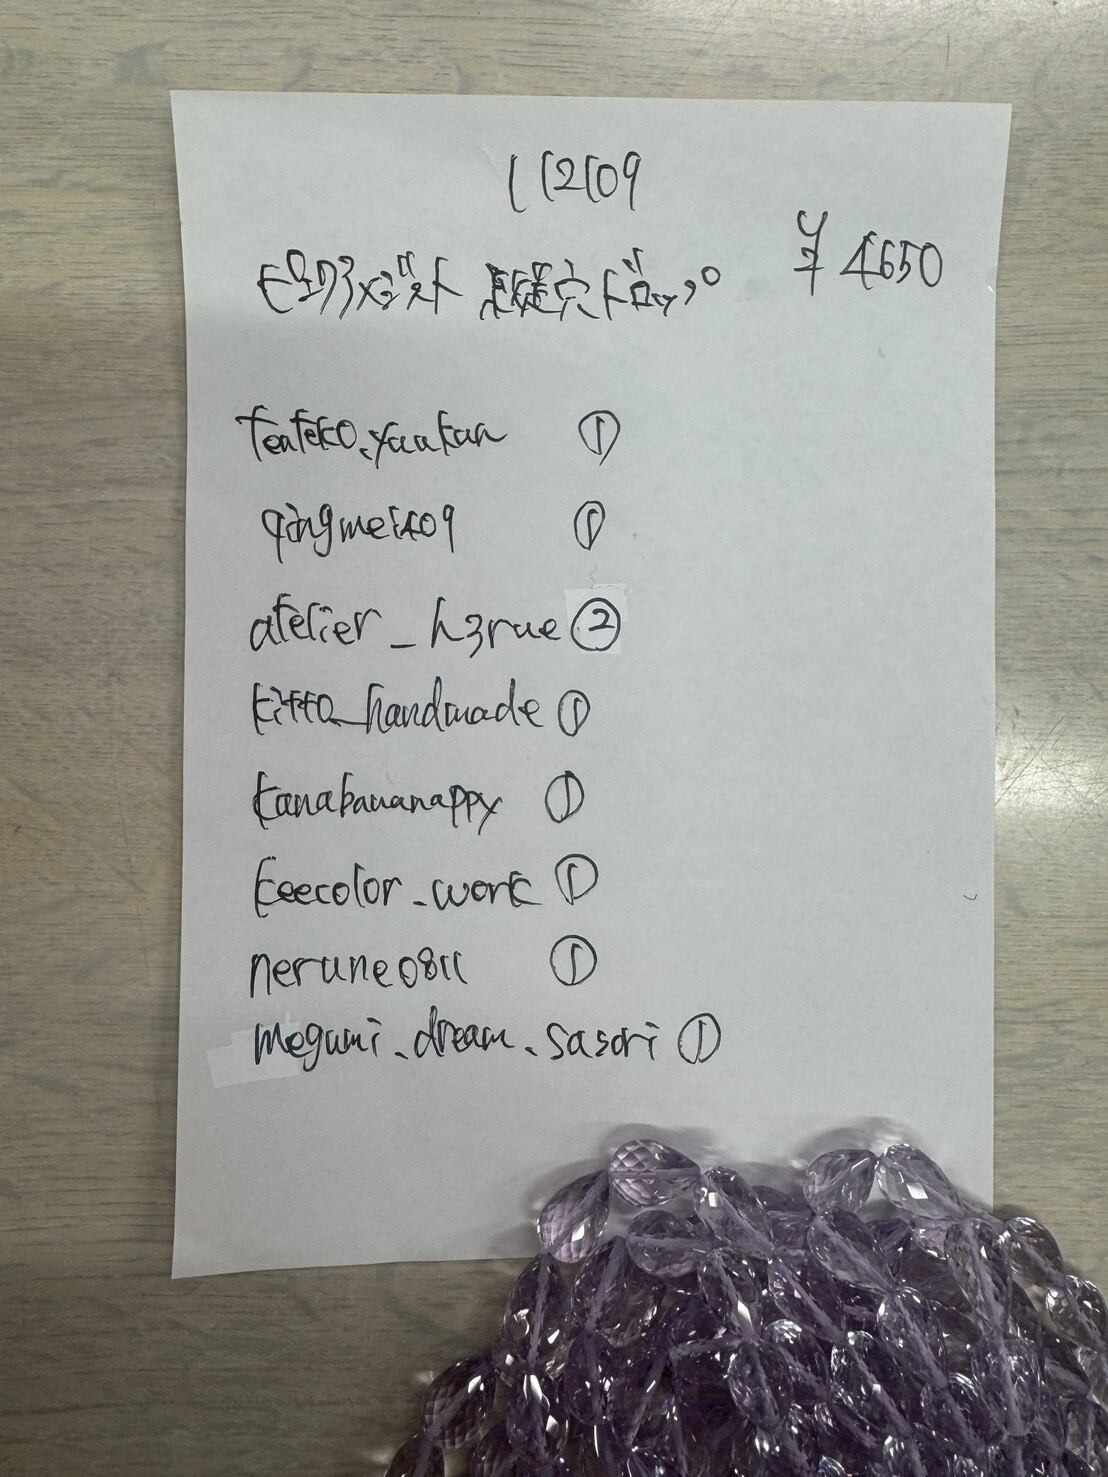 112109
ピンクアメジスト 縦穴ドロップ ¥4650
tenteko.yuukan ①
qingmei409 ①
atelier_h3rue ②
kitto_handmade ①
kanabananappy ①
keecolor_work ①
nerune0811 ①
megumi.dream.sasori ①